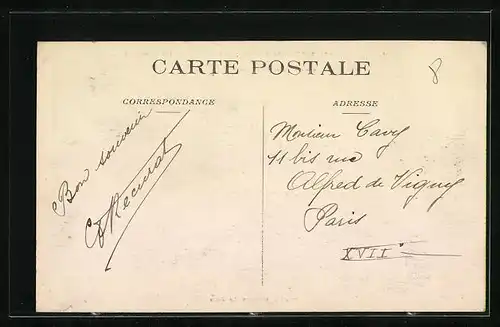 CARTE POSTALE
8
CORRESPONDANCE
Bon souvenir
ADRESSE
Monsieur Cavy
11 bis rue
Alfred de Vigny
Paris
XVIIe